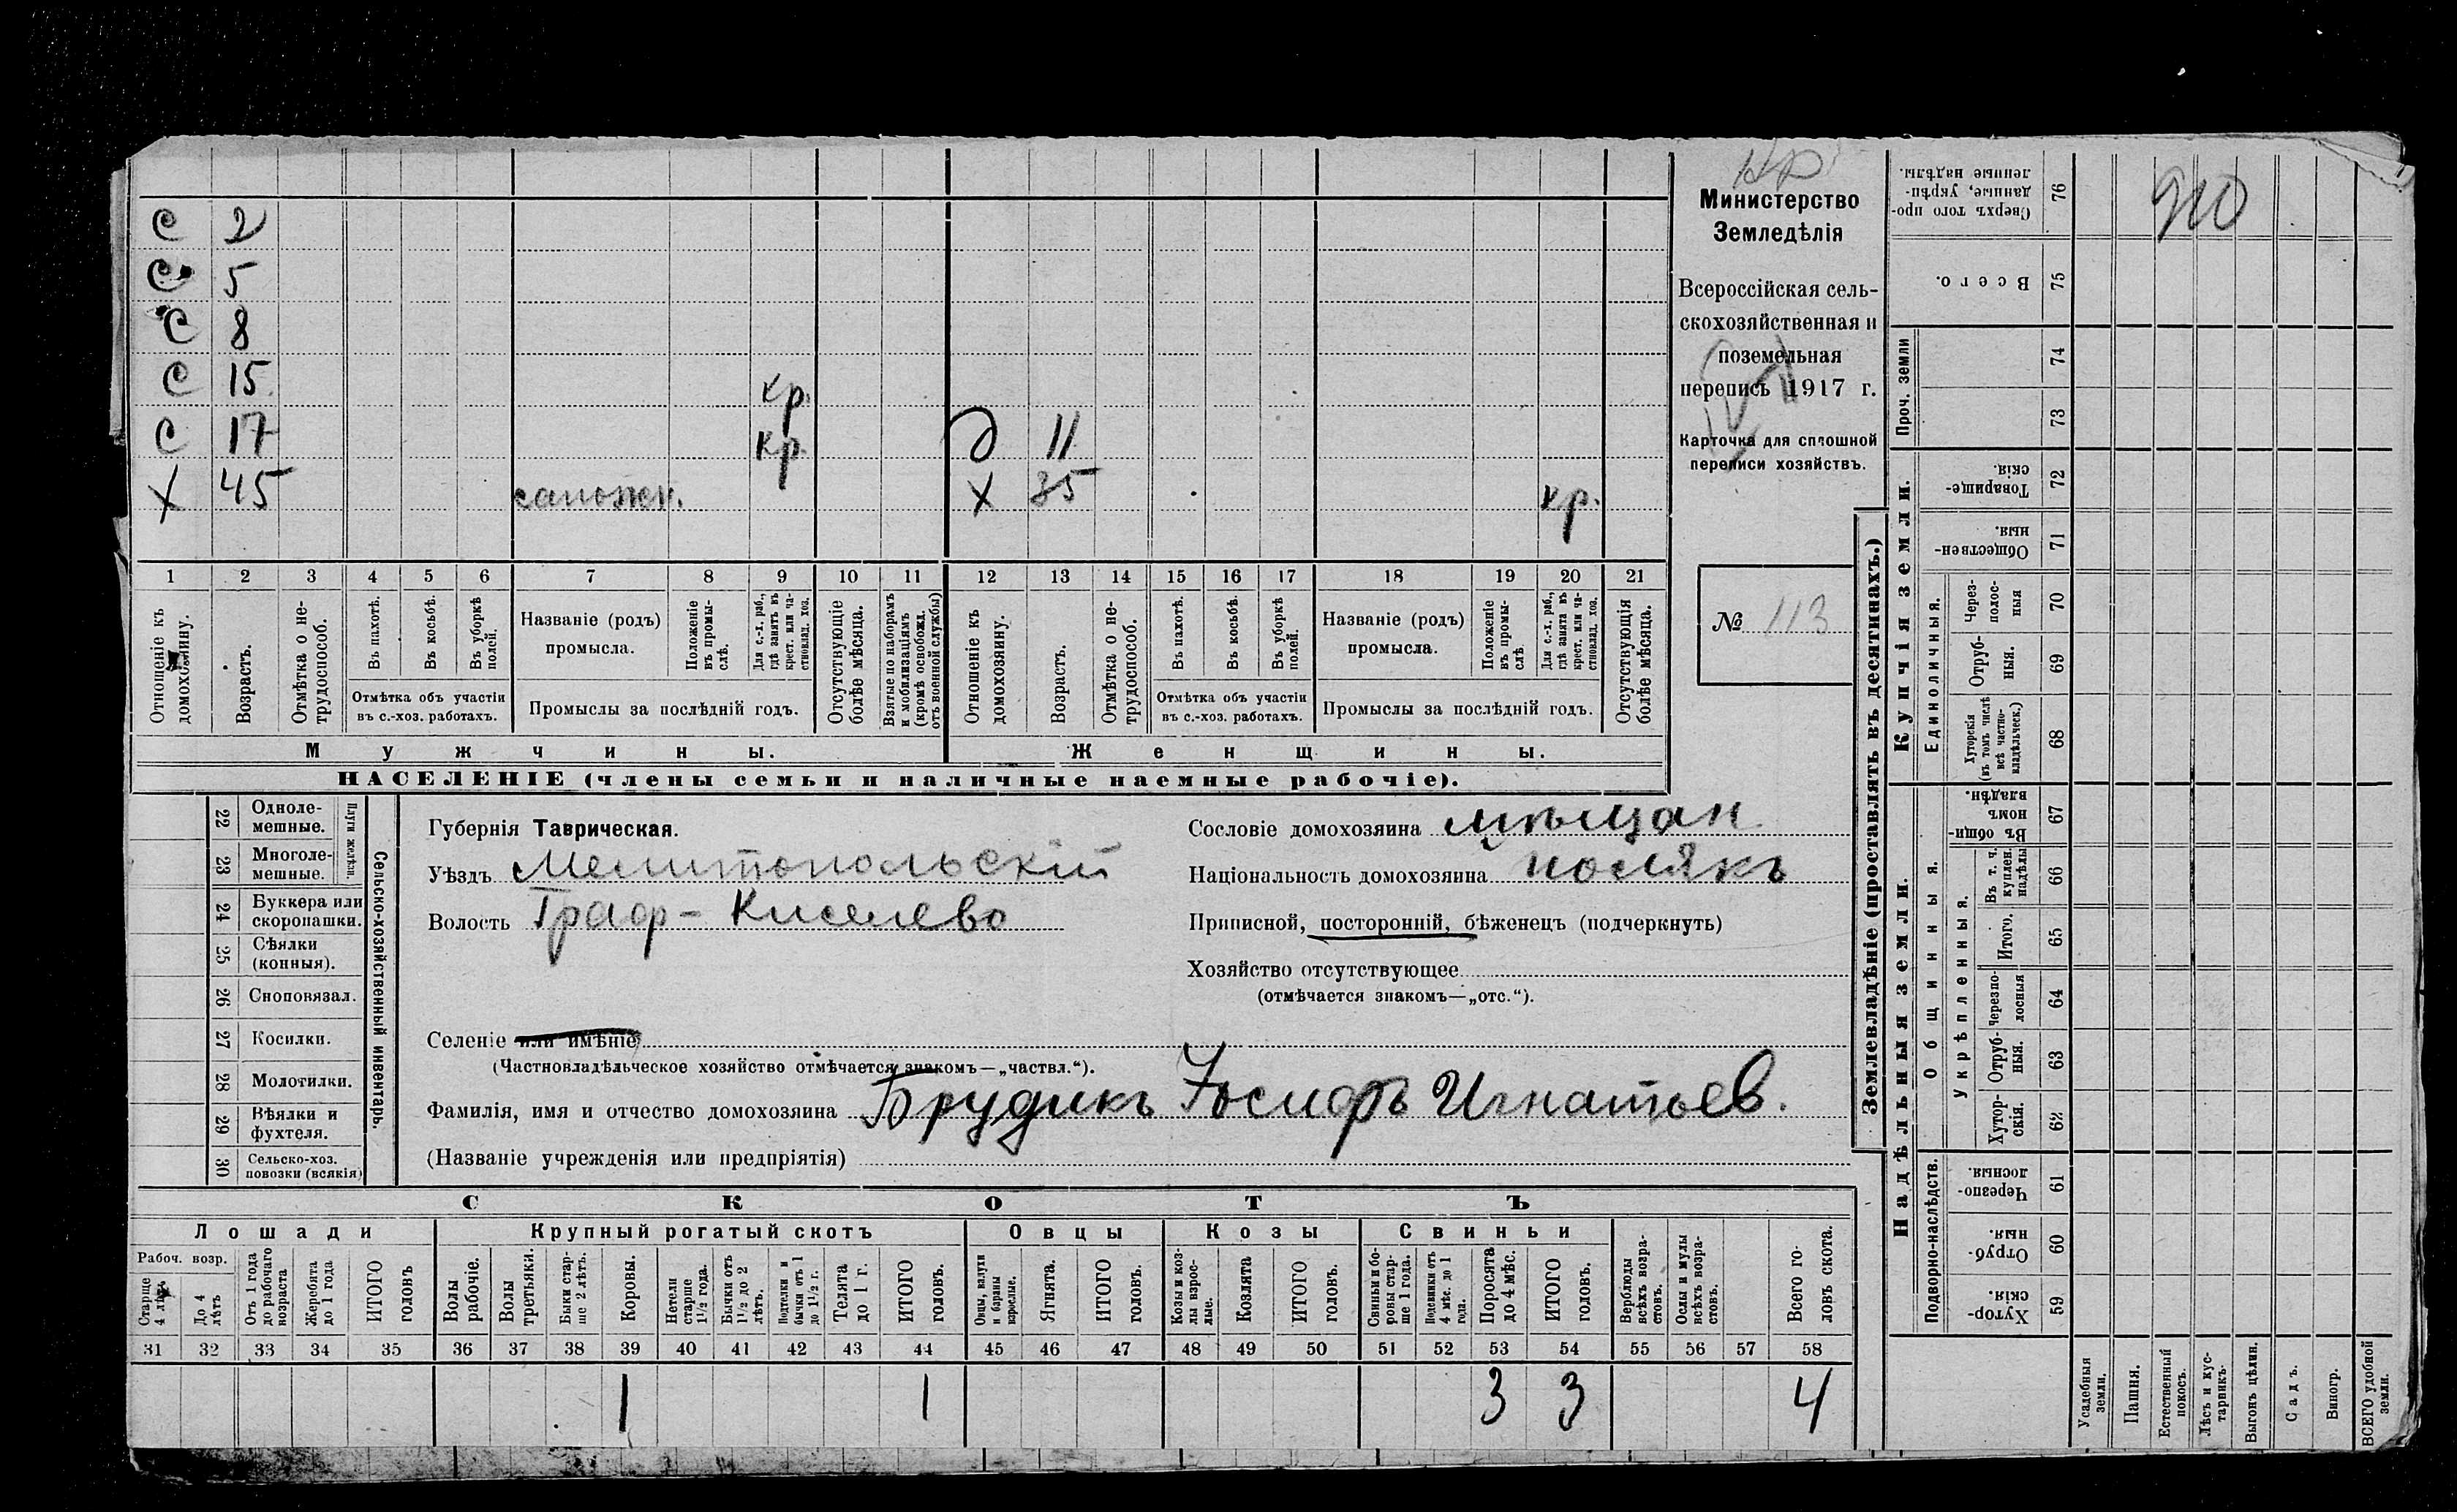 Кр
С 2
С 5
С 8
С 15 кр.
С 17 кр. Д 11
Х 45 сапожн. Х 35 кр.
1 2 3 4 5 6 7 8 9 10 11 12 13 14 15 16 17 18 19 20 21
Отношеніе къ домохозяину.
Возрастъ.
Отмѣтка о нетрудоспособ.
Въ пахотѣ.
Въ косьбѣ.
Въ уборкѣ полей.
Отмѣтка объ участіи въ с.-хоз. работахъ.
Названіе (родъ) промысла.
Положеніе въ промыслѣ.
Для с.-х. раб., гдѣ занятъ въ крест. или частновлад. хоз.
Промыслы за послѣдній годъ.
Отсутствующіе болѣе мѣсяца.
Взятые по наборамъ и мобилизаціямъ (кромѣ освобожд. отъ военной службы)
Отношеніе къ домохозяину.
Возрастъ.
Отмѣтка о нетрудоспособ.
Въ пахотѣ.
Въ косьбѣ.
Въ уборкѣ полей.
Отмѣтка объ участіи въ с.-хоз. работахъ.
Названіе (родъ) промысла.
Положеніе въ промыслѣ.
Для с.-х. раб., гдѣ занята въ крест. или частновлад. хоз.
Промыслы за послѣдній годъ.
Отсутствующія болѣе мѣсяца.
Мужчины. Женщины.
НАСЕЛЕНІЕ (члены семьи и наличные наемные рабочіе).
Министерство
Земледѣлія
Всероссійская сель-
скохозяйственная и
поземельная
перепись 1917 г.
Карточка для сплошной
переписи хозяйствъ.
№ 113
22 Одноле-мешные.
23 Многоле-мешные.
Плуги желѣзн.
24 Буккера или скоропашки.
25 Сѣялки (конныя).
26 Сноповязал.
27 Косилки.
28 Молотилки.
29 Вѣялки и фухтеля.
30 Сельско-хоз. повозки (всякія)
Сельско-хозяйственный инвентарь.
Губернія Таврическая.
Уѣздъ Мелитопольскій
Волость Граф-Киселево
Селеніе или имѣніе
(Частновладѣльческое хозяйство отмѣчается знакомъ—„частвл.“).
Фамилія, имя и отчество домохозяина Брудикъ Іосифъ Игнатьев.
(Названіе учрежденія или предпріятія)
Сословіе домохозяина мѣщан
Національность домохозяина полякъ
Приписной, посторонній, бѣженецъ (подчеркнуть)
Хозяйство отсутствующее
(отмѣчается знакомъ—„отс.“).
СКОТЪ
Лошади Крупный рогатый скотъ Овцы Козы Свиньи
Рабоч. возр.
Старше 4 лѣтъ
До 4 лѣтъ
Отъ 1 года до рабочаго возраста
Жеребята до 1 года
ИТОГО головъ
Волы рабочіе.
Волы третьяки.
Быки старше 2 лѣтъ.
Коровы.
Нетели старше 1½ года.
Бычки отъ 1½ до 2 лѣтъ.
Подтелки и бычки отъ 1 до 1½ г.
Телята до 1 г.
ИТОГО головъ.
Овцы, валухи и бараны взрослые.
Ягнята.
ИТОГО головъ.
Козы и козлы взрослые.
Козлята
ИТОГО головъ.
Свиньи и боровы старше 1 года.
Подсвинки отъ 4 мѣс. до 1 года.
Поросята до 4 мѣс.
ИТОГО головъ.
Верблюды всѣхъ возрастовъ.
Ослы и мулы всѣхъ возрастовъ.
Всего головъ скота.
31 32 33 34 35 36 37 38 39 40 41 42 43 44 45 46 47 48 49 50 51 52 53 54 55 56 57 58
1 1 3 3 4
Землевладѣніе (проставлять въ десятинахъ.)
Купчія земли.
Надѣльныя земли.
Сверхъ того проданные, укрѣпленные надѣлы. 76
Всего. 75
Проч. земли 74 73
Товарищескія. 72
Общественныя. 71
Единоличныя.
Черезполосныя 70
Отрубныя. 69
Хуторскія (въ томъ числѣ всѣ частновладѣльческ.) 68
Въ общинномъ владѣн. 67
Общинныя.
Укрѣпленныя.
Въ т. ч. куплен. надѣлы 66
Итого. 65
Черезполосныя 64
Отрубныя. 63
Хуторскія. 62
Подворно-наслѣдств.
Черезполосныя. 61
Отрубныя. 60
Хуторскія. 59
Усадебныя земли.
Пашня.
Естественный покосъ.
Лѣсъ и кустарникъ.
Выгонъ цѣлин.
Садъ.
Виногр.
ВСЕГО удобной земли.